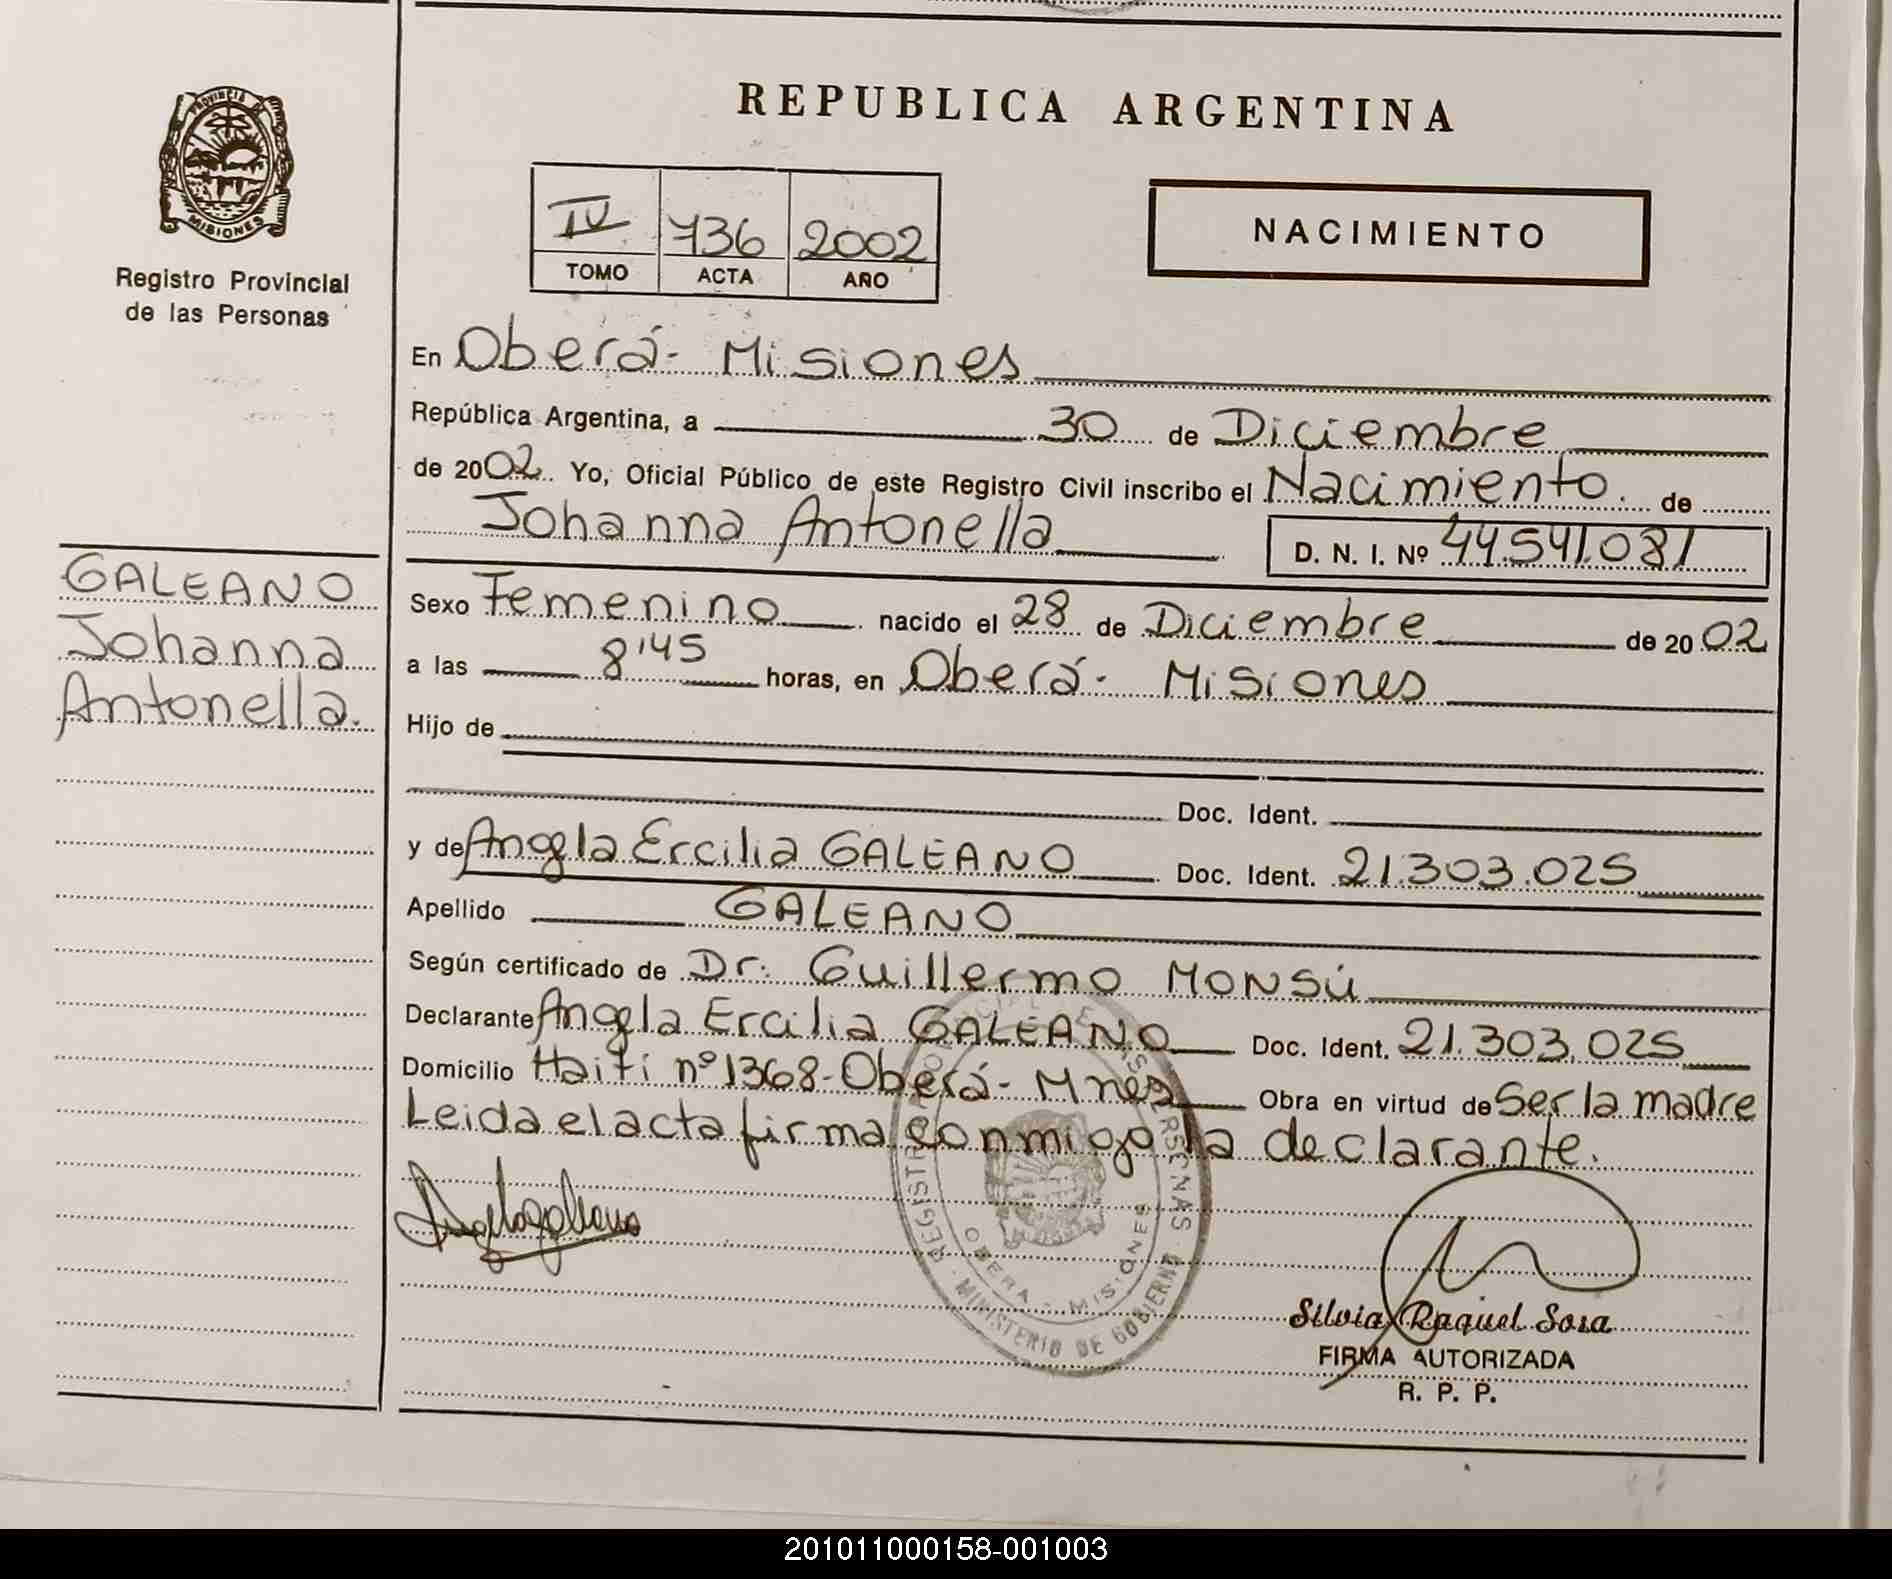 REPUBLICA ARGENTINA
PROVINCIA DE
MISIONES
Registro Provincial
de las Personas
IV 736 2002
TOMO ACTA AÑO
NACIMIENTO
En Oberá- Misiones
República Argentina, a 30 de Diciembre
de 2002. Yo, Oficial Público de este Registro Civil inscribo el Nacimiento. de
Johanna Antonella D. N. I. Nº 44.541.081
GALEANO
Johanna
Antonella.
Sexo Femenino nacido el 28 de Diciembre de 2002
a las 8'45 horas, en Oberá- Misiones
Hijo de
Doc. Ident.
y de Angela Ercilia GALEANO Doc. Ident. 21.303.025
Apellido GALEANO
Según certificado de Dr. Guillermo MONSÚ
Declarante Angela Ercilia GALEANO Doc. Ident. 21.303.025
Domicilio Haití nº 1368- Oberá- Mnes Obra en virtud de Ser la madre
Leida el acta firma conmigo la declarante.
REGISTRO PROVINCIAL DE LAS PERSONAS
OBERA - MISIONES
MINISTERIO DE GOBIERNO
Silvia Raquel Sosa
FIRMA AUTORIZADA
R. P. P.
201011000158-001003